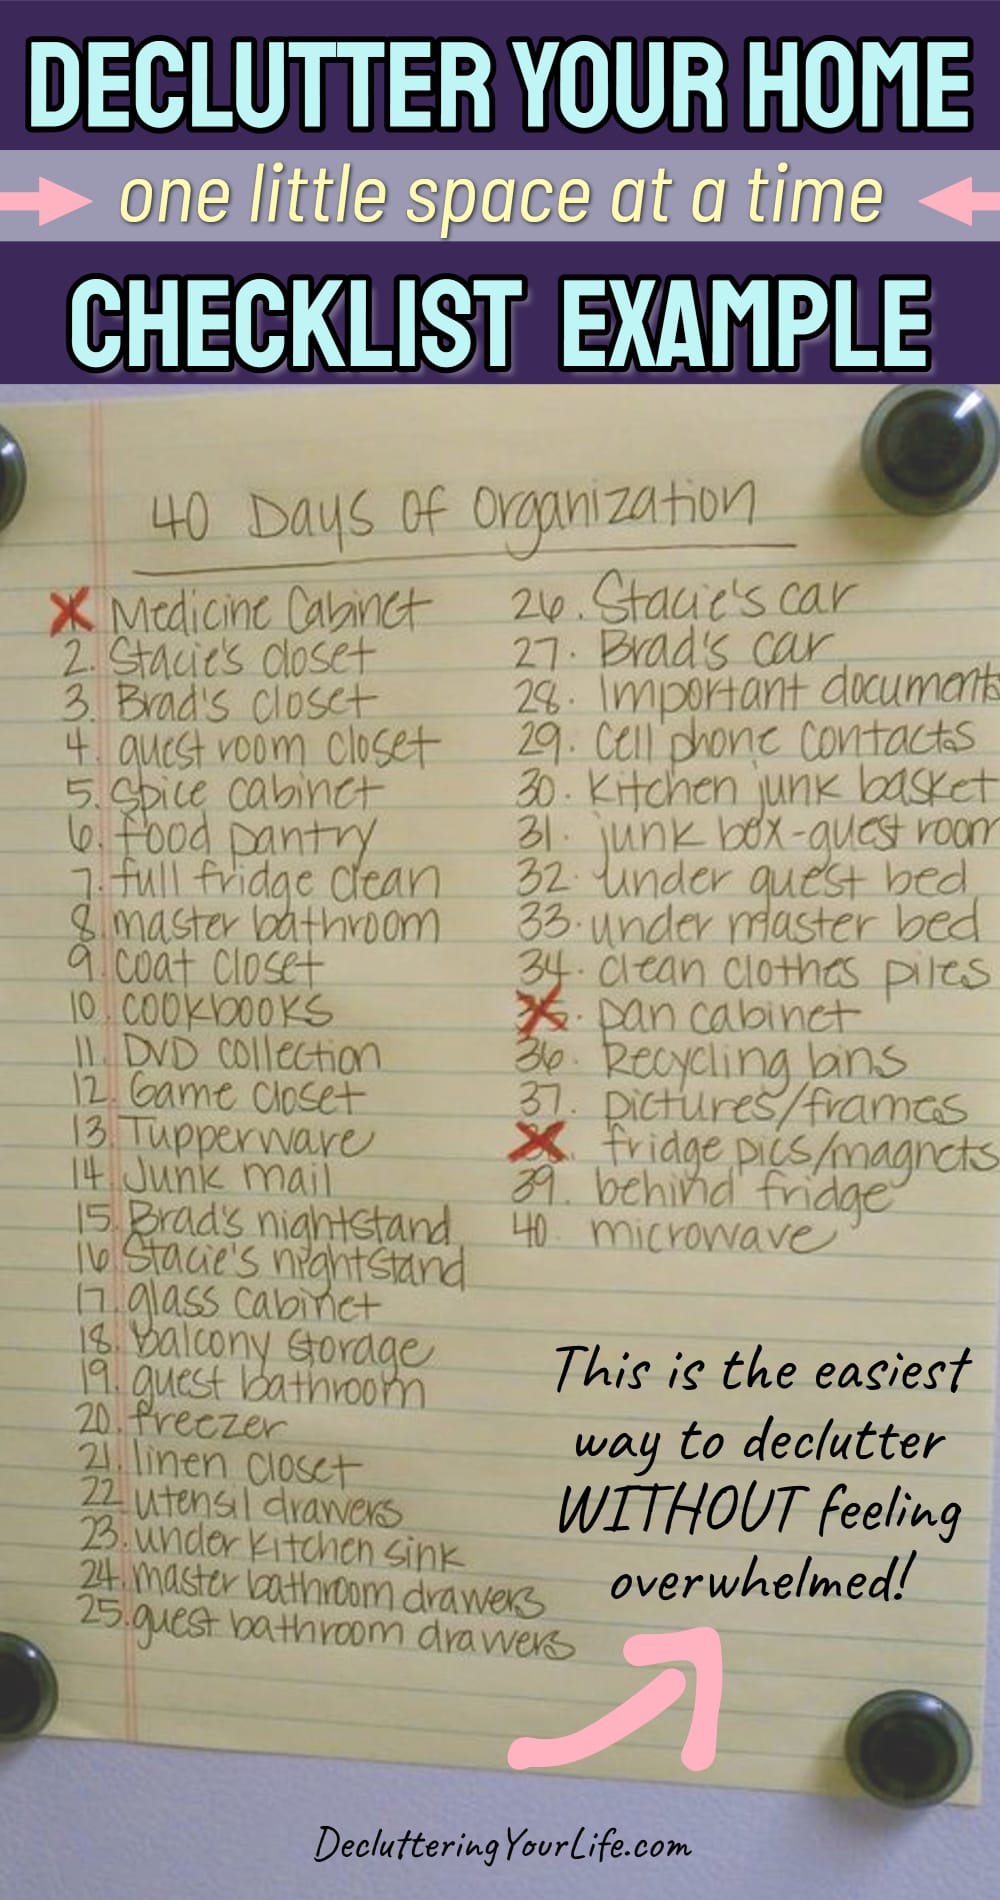 DECLUTTER YOUR HOME
one little space at a time
CHECKLIST EXAMPLE
40 Days of Organization
Medicine Cabinet
2. Stacie's closet
3. Brad's closet
4. guest room closet
5. Spice cabinet
6. food pantry
7. full fridge clean
8. master bathroom
9. coat closet
10. cookbooks
11. DVD collection
12. Game closet
13. Tupperware
14. Junk mail
15. Brad's nightstand
16. Stacie's nightstand
17. glass cabinet
18. balcony storage
19. guest bathroom
20. freezer
21. linen closet
22. utensil drawers
23. under kitchen sink
24. master bathroom drawers
25. guest bathroom drawers
26. Stacie's car
27. Brad's car
28. Important documents
29. Cell phone contacts
30. kitchen junk basket
31. junk box-guest room
32. under guest bed
33. under master bed
34. clean clothes piles
pan cabinet
36. Recycling bins
37. pictures/frames
fridge pics/magnets
39. behind fridge
40. microwave
This is the easiest
way to declutter
WITHOUT feeling
overwhelmed!
DeclutteringYourLife.com